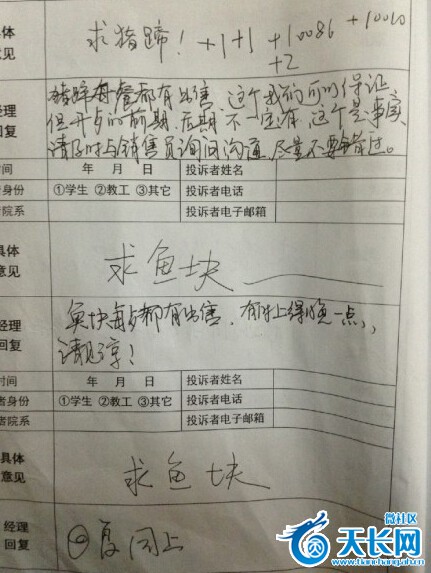 具体
意见
求猪蹄! +1+1 +10086 +10010
+2
经理
回复
猪蹄每餐都有出售,这个我们可以保证,
但开卖的前期、后期不一定有,这个是事实
请及时与销售员询问沟通,尽量不要错过。
时间 年 月 日 投诉者姓名
者身份 ①学生 ②教工 ③其它 投诉者电话
者院系 投诉者电子邮箱
具体
意见
求鱼块
经理
回复
鱼块每歺都有出售,有时上得晚一点,
请见谅!
时间 年 月 日 投诉者姓名
者身份 ①学生 ②教工 ③其它 投诉者电话
者院系 投诉者电子邮箱
具体
意见
求鱼块
经理
回复
回复同上
微社区
天长网
www.tianchang.ah.cn